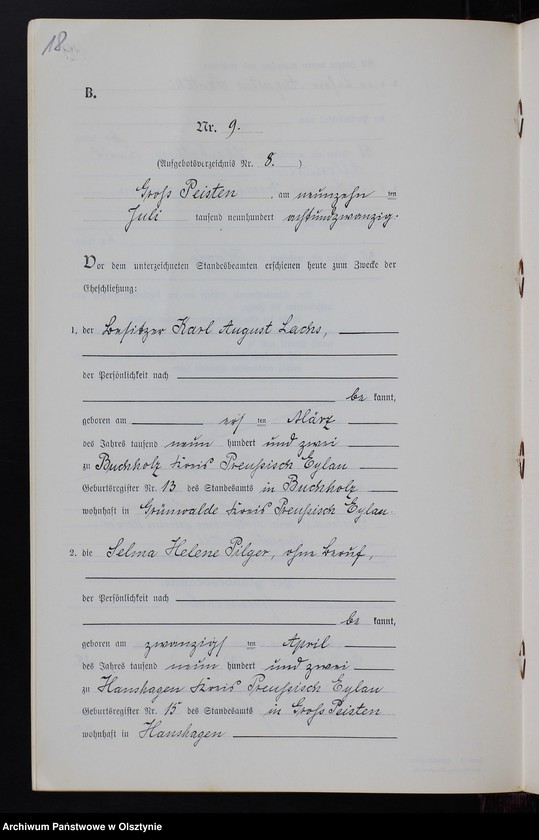 18.
B.
Nr. 9.
(Aufgebotsverzeichnis Nr. 8. )
Groß Peisten, am neunzehn ten
Juli tausend neunhundert achtundzwanzig.
Vor dem unterzeichneten Standesbeamten erschienen heute zum Zwecke der
Eheschließung:
1. der Besitzer Karl August Lachs,
der Persönlichkeit nach
be kannt,
geboren am ersten März
des Jahres tausend neun hundert und zwei
zu Buchholz Kreis Preußisch Eylau
Geburtsregister Nr. 13 des Standesamts in Buchholz
wohnhaft in Grünwalde Kreis Preußisch Eylau
2. die Selma Helene Pilger, ohne Beruf,
der Persönlichkeit nach
be kannt,
geboren am zwanzigsten April
des Jahres tausend neun hundert und zwei
zu Hanshagen Kreis Preußisch Eylau
Geburtsregister Nr. 15 des Standesamts in Groß Peisten
wohnhaft in Hanshagen
Archiwum Państwowe w Olsztynie